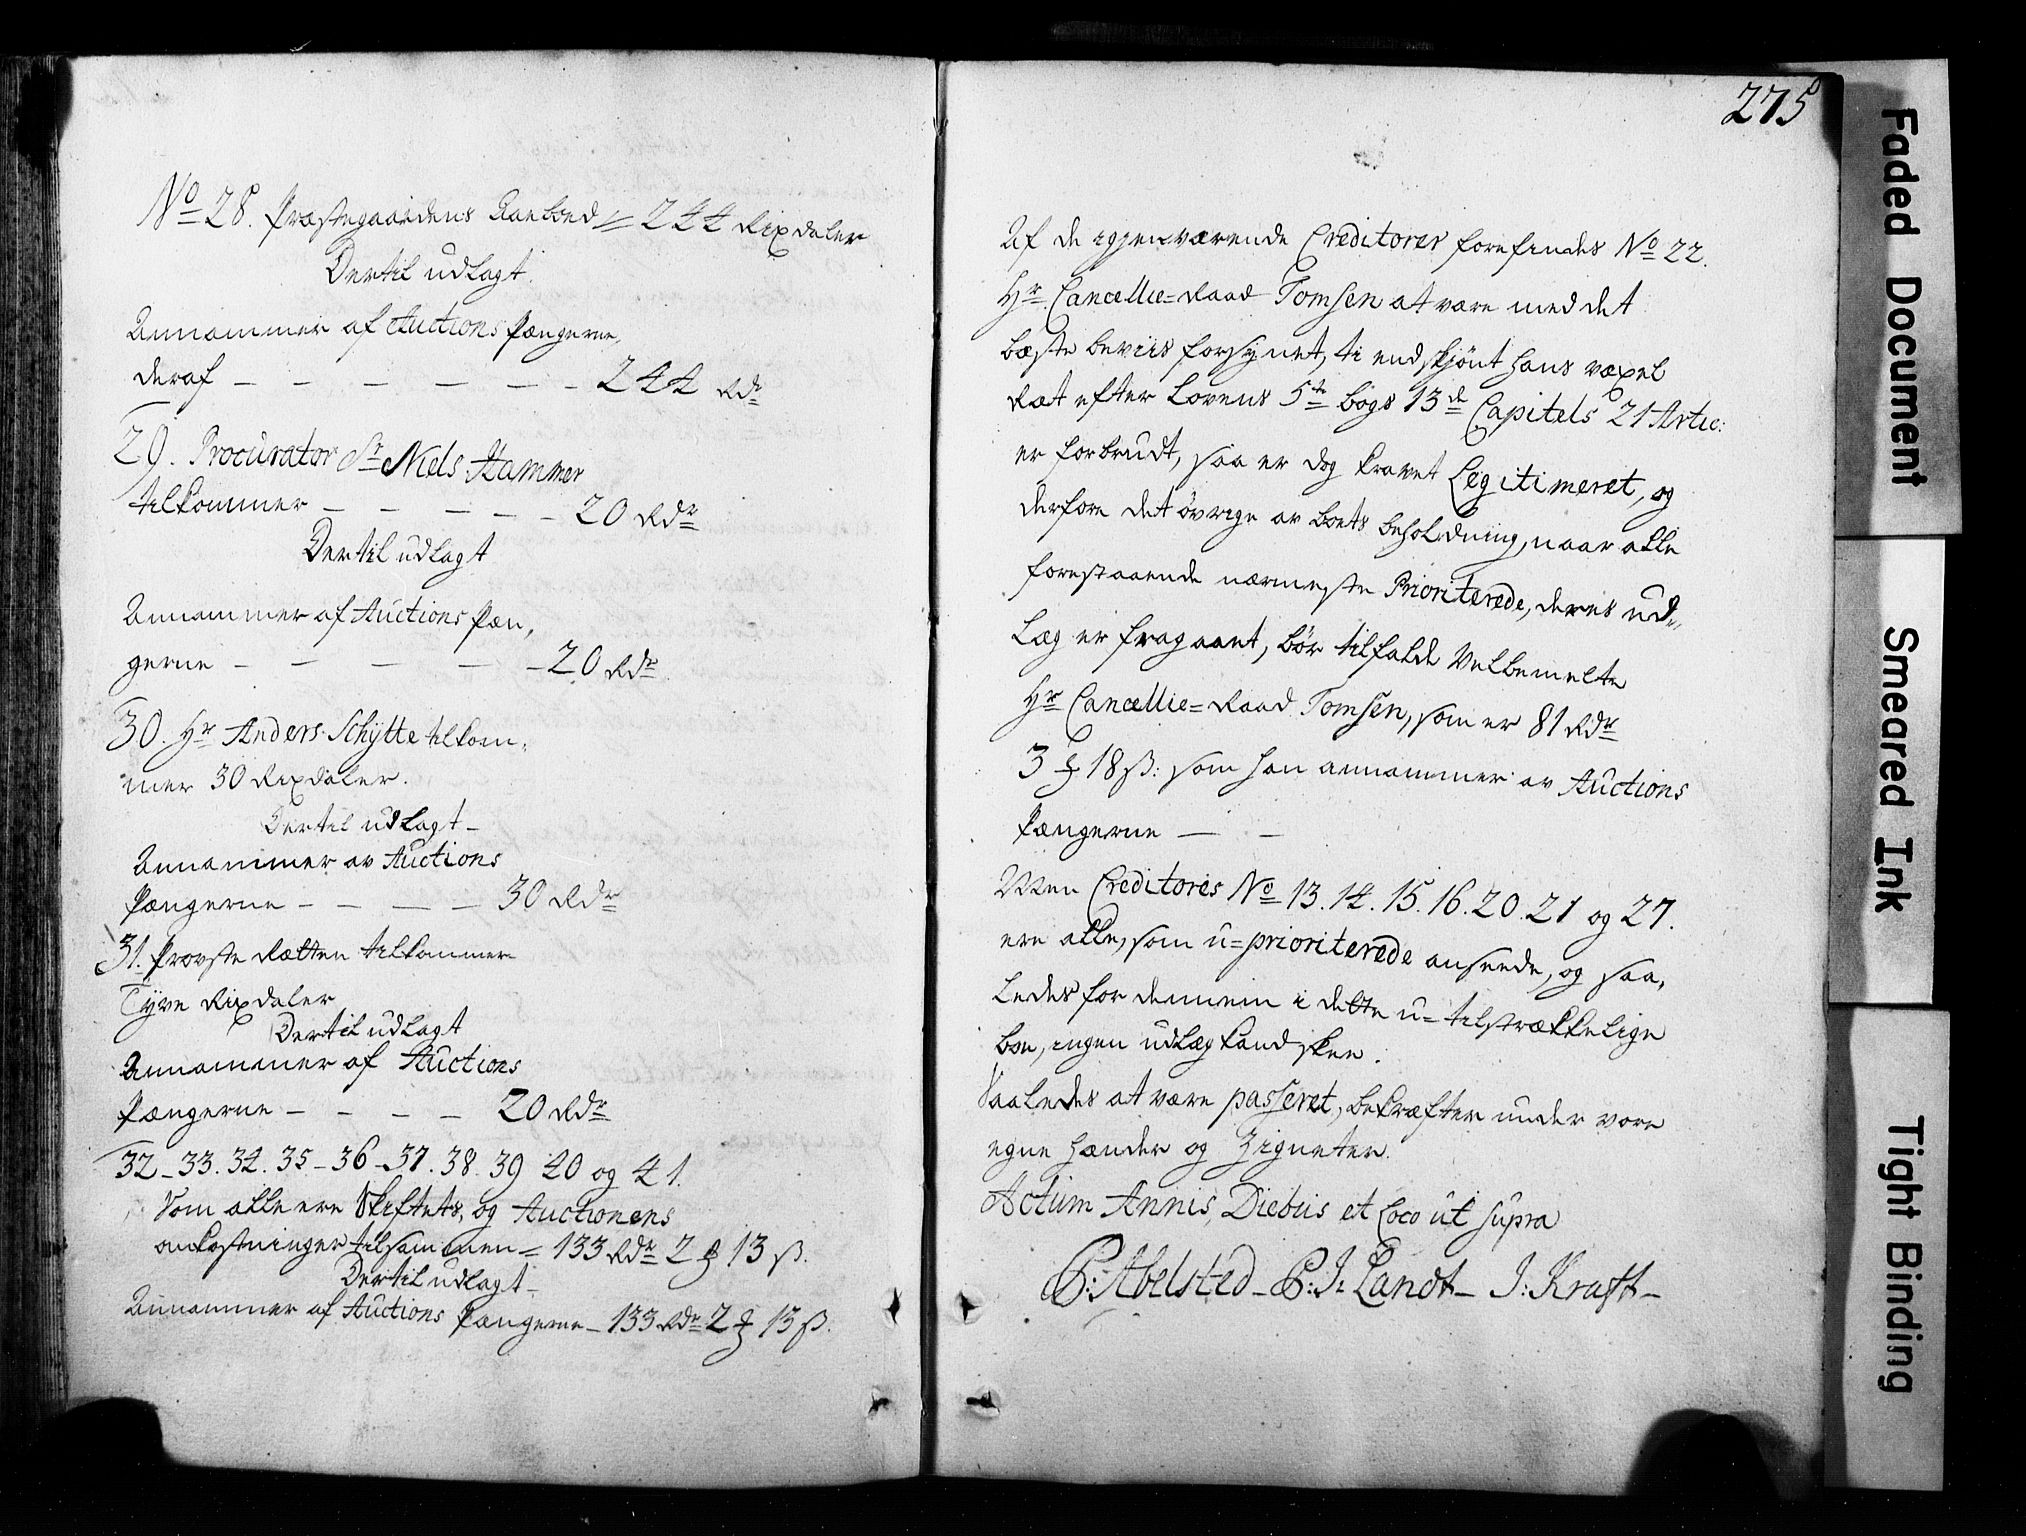 No 28. Præstegaardens Aaeboed = 244 Rixdaler
Dertil udlagt.
Annammer af Auctions Pængerne,
deraf — — — — — — 244 Rdr
29. Procurator Sr Niels Hammer
tilkommer — — — — — 20 Rdr
Dertil udlagt
Annammer af Auctions Pæn,
gerne — — — — — 20 Rdr
30. Hr Anders Schytte tilkom,
mer 30 Rixdaler.
Dertil udlagt —
Annammer av Auctions
Pængerne — — — — 30 Rdr
31. Provste Rætten tilkommer
Tyve Rixdaler
Dertil udlagt
Annammer af Auctions
Pængerne — — — — 20 Rdr
32 — 33. 34. 35 — 36 — 37. 38. 39 40 og 41.
Som alle ere Skiftets, og Auctionens
omkostninger tilsammen = 133 Rdr 2 ₰ 13 ß.
Dertil udlagt —
Annammer af Auctions Pængerne — 133 Rdr 2 ₰ 13 ß.
275
Af de igjenværende Creditorer forefindes No 22.
Hr Cancellie=Raad Tomsen at være med det
bæste beviis forsynet, ti endskjönt hans væxel
Ræt efter Lovens 5te bogs 13de Capitels 21 Artic:
er forbrudt, saa er dog kravet Legitimeret, og
derfore det övrige av boets beholdning, naar alle
forestaaende nærmeste Prioriterede, deres ud,,
læg er fragaaet, bör tilfalde Velbemelte
Hr Cancellie=Raad Tomsen, som er 81 Rdr
3 ₰ 18 ß: som han annammer av Auctions
Pængerne — —
Men Creditores No 13. 14. 15. 16. 20. 21 og 27.
ere alle, som u=prioriterede anseede, og saa,
ledes for dennem i dette u=tilstrækkelige
boe, ingen udlæg kand skee.
Saaledes at være passeret, bekræfter under vore
egne hænder og Zigneter.
Actum Annis, Diebus et Loco ut supra
P: Abelsted — P: J: Landt — J: Kraft —
Faded Document
Smeared Ink
Tight Binding